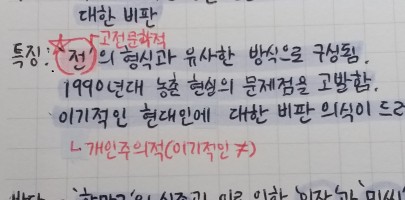 대한 비판
고전문학적
특징: ☆전의 형식과 유사한 방식으로 구성됨.
1990년대 농촌 현실의 문제점을 고발함.
이기적인 현대인에 대한 비판 의식이 드러
ㄴ개인주의적(이기적인 ≠)